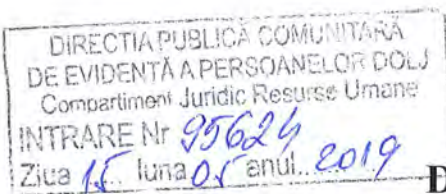 DIRECTIA PUBLICĂ COMUNITARĂ
DE EVIDENTĂ A PERSOANELOR DOLJ
Compartiment Juridic Resurse Umane
INTRARE Nr 95624
Ziua 15 luna 05 anul..2019